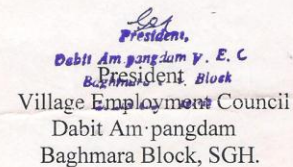 President,
Dabit Am pangdam V. E. C
Baghmara Block
President
Village Employment Council
Dabit Am·pangdam
Baghmara Block, SGH.